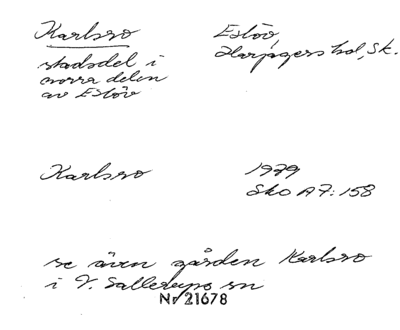 Karlsro
Eslöv,
Harjagers hd, Sk.
stadsdel i
norra delen
av Eslöv
Karlsro
1979
Sko A7:158
se även gården Karlsro
i V. Sallerups sn
Nr 21678